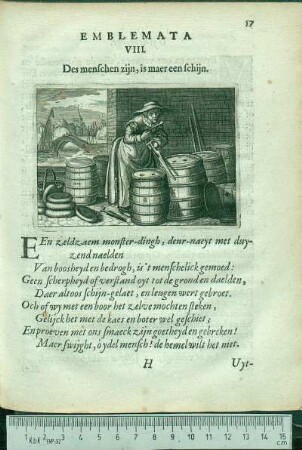 17
EMBLEMATA
VIII.
Des menschen zijn, is maer een schijn.
EEn zeldzaem monster-dingh, deur-naeyt met duy-
zend naelden
Van boosheyd en bedrogh, is 't menschelick gemoed:
Geen scherpheyd of verstand oyt tot de grond en daelden,
Daer altoos schijn-gelaet, en leugen wert gebroet.
Och of wy met een boor het zelve mochten steken,
Gelijck het met de kaes en boter wel geschiet;
En proeven met ons smaeck zijn goetheyd en gebreken!
Maer swijght, ô ydel mensch! de hemel wilt het niet.
H Uyt-
1 2 3 4 5 6 7 8 9 10 11 12 13 14 15
cm